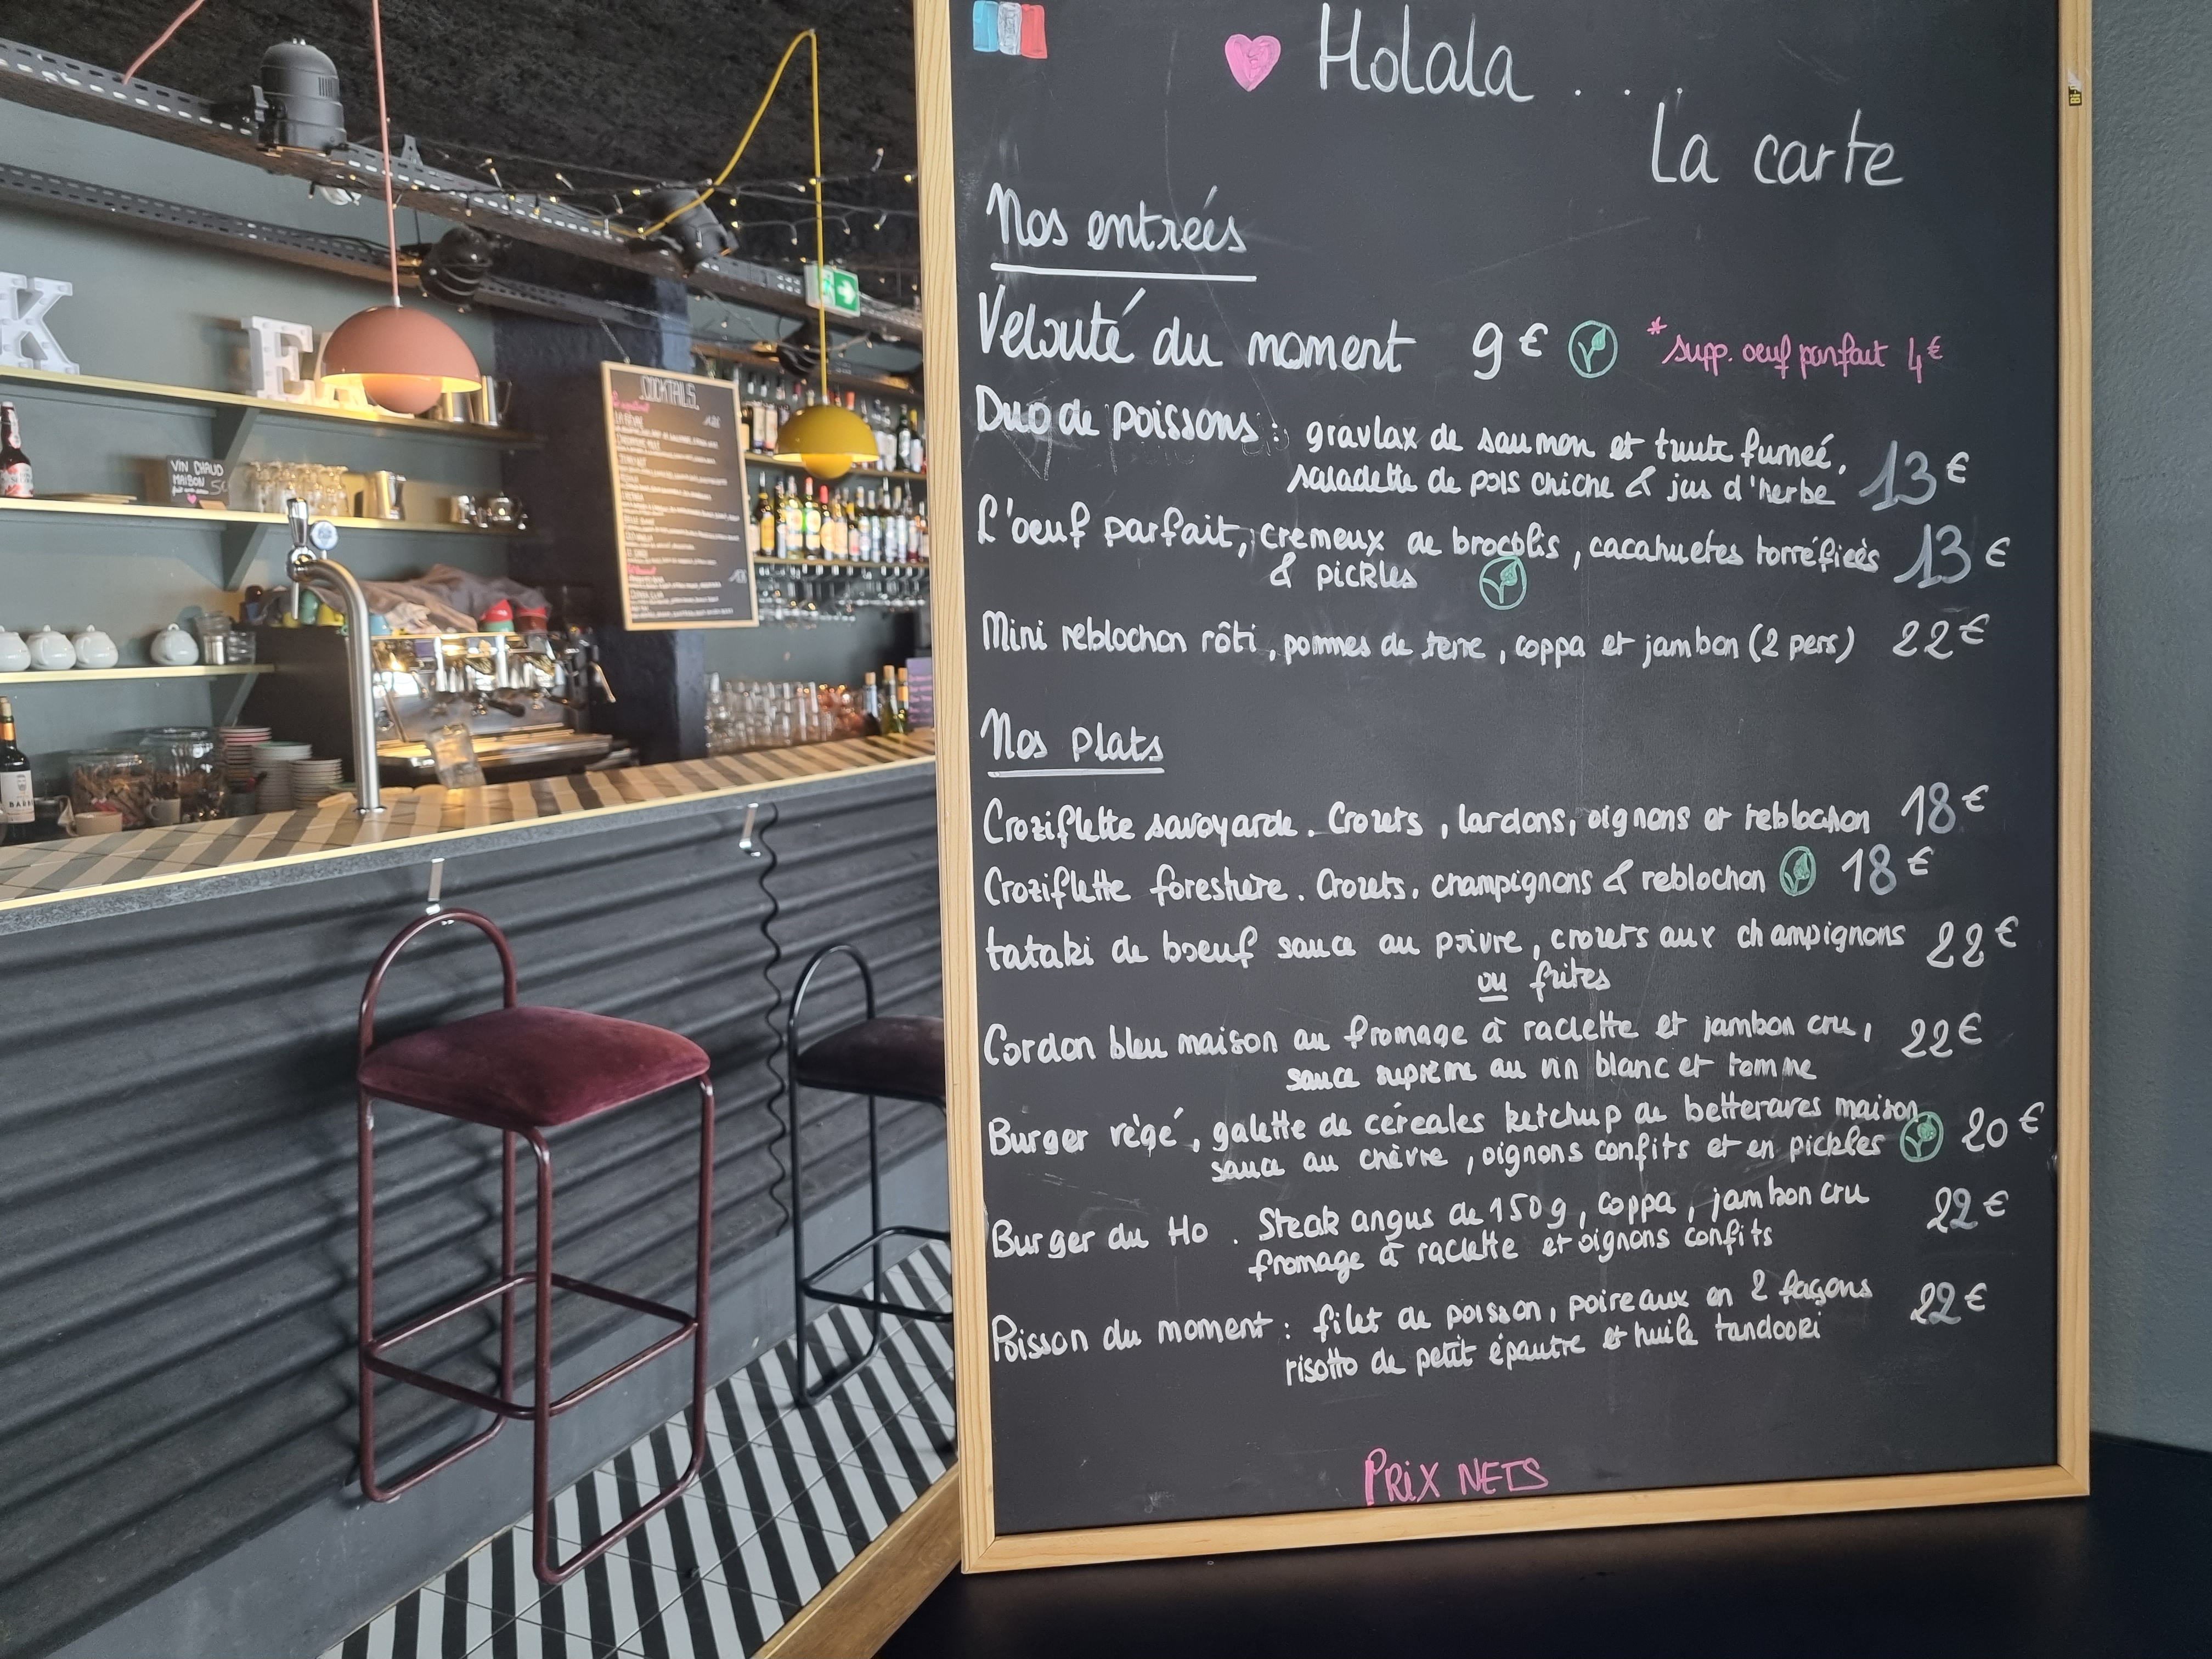 Holala . . .
La carte
Nos entrées
Velouté du moment 9 € *supp. oeuf parfait 4€
Duo de poissons : gravlax de saumon et truite fumeé,
saladette de pois chiche & jus d'herbe 13 €
L'oeuf parfait, cremeux de brocolis, cacahuetes torréfieés 13 €
& pickles
Mini reblochon rôti, pommes de terre, coppa et jambon (2 pers) 22 €
Nos plats
Croziflette savoyarde. Crozets, lardons, oignons et reblochon 18 €
Croziflette forestiere. Crozets, champignons & reblochon 18 €
tataki de boeuf sauce au poivre, crozets aux champignons 22 €
ou frites
Cordon bleu maison au fromage à raclette et jambon cru, 22 €
sauce suprême au vin blanc et tomme
Burger végé, galette de céreales ketchup de betteraves maison
sauce au chèvre, oignons confits et en pickles 20 €
Burger du Ho. Steak angus de 150g, coppa, jambon cru 22 €
fromage à raclette et oignons confits
Poisson du moment : filet de poisson, poireaux en 2 façons 22 €
risotto de petit épautre et huile tandoori
PRiX NETS
K
EA
VIN CHAUD
MAISON 5€
COCKTAILS